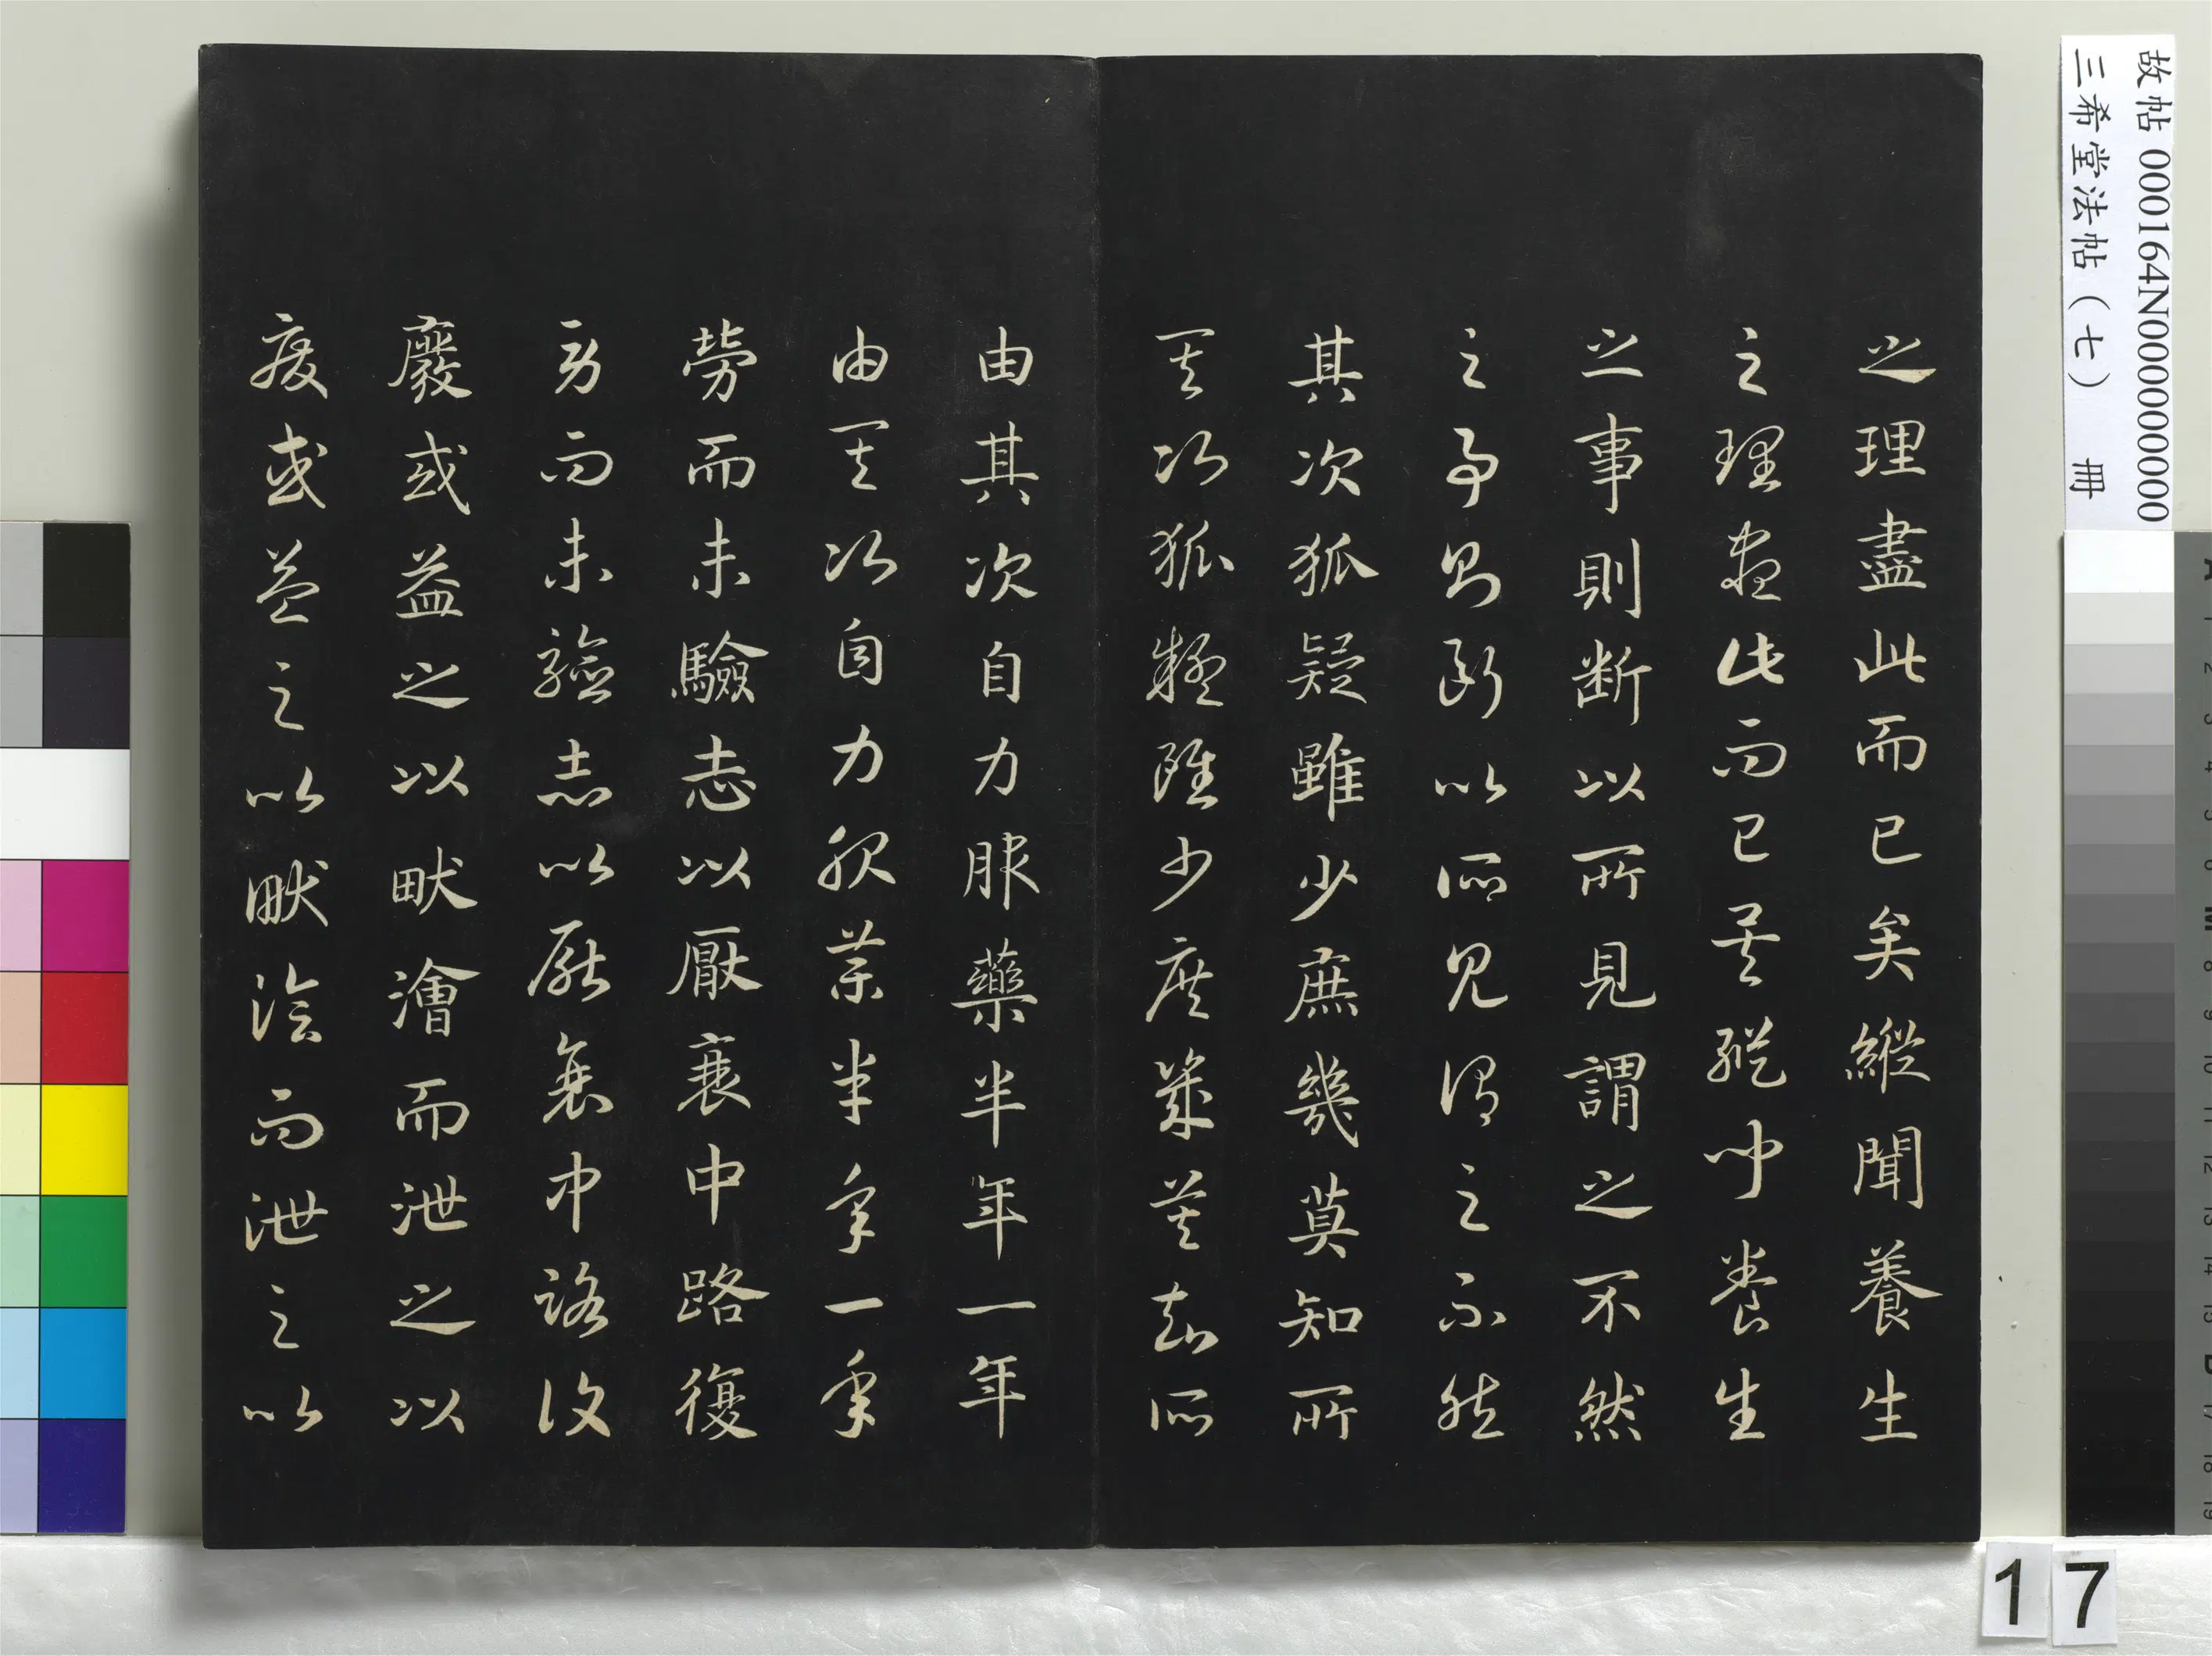 之理盡此而已矣縱聞養生
之理盡此而已矣縱聞養生
之事則断以所見謂之不然
之事則断以所見謂之不然
其次狐疑雖少庶幾莫知所
其次狐疑雖少庶幾莫知所
由其次自力服藥半年一年
由其次自力服藥半年一年
勞而未驗志以厭衰中路復
勞而未驗志以厭衰中路復
廢或益之以畎澮而泄之以
廢或益之以畎澮而泄之以
故帖 000164N000000000
三希堂法帖（七） 冊
17